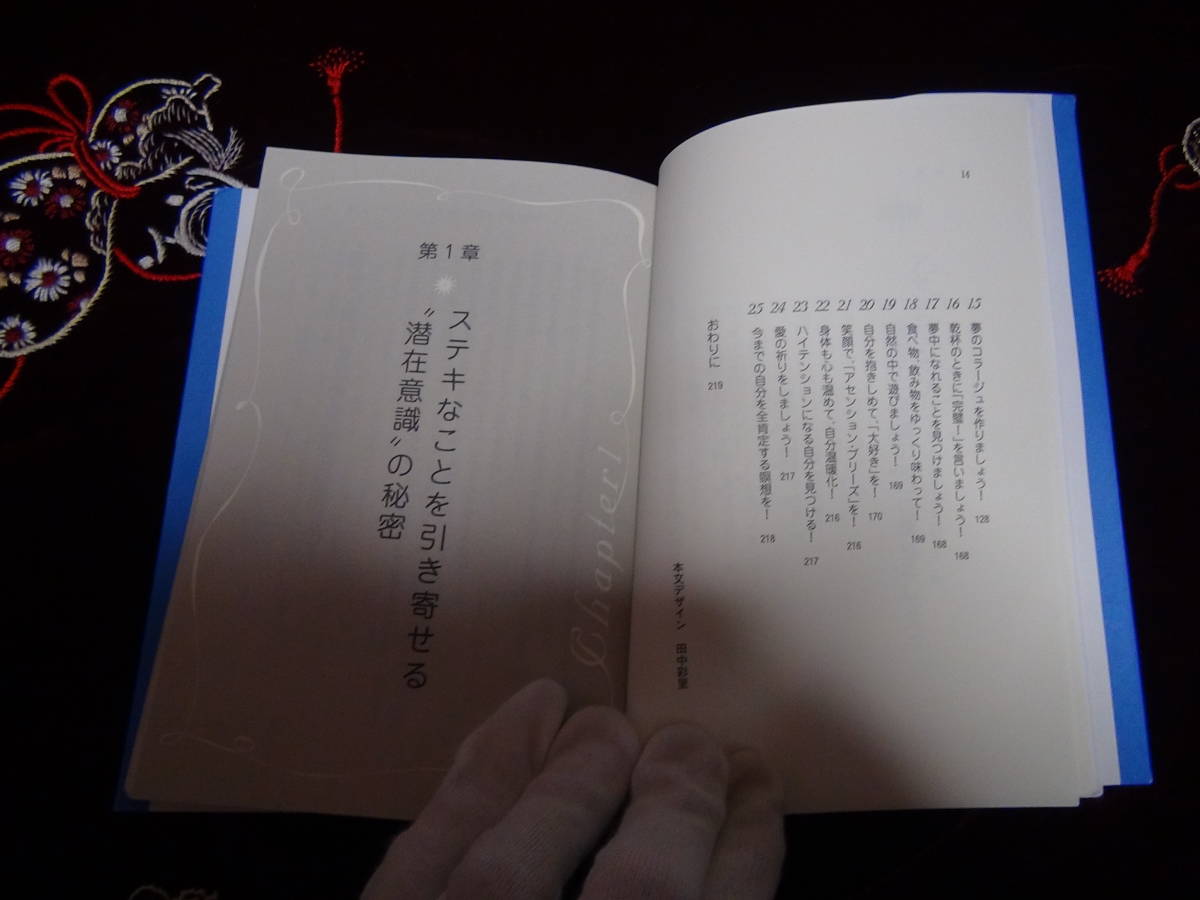 14
15 夢のコラージュを作りましょう! 128
16 乾杯のときに「完璧!」を言いましょう! 168
17 夢中になれることを見つけましょう! 168
18 食べ物、飲み物をゆっくり味わって! 169
19 自然の中で遊びましょう! 169
20 自分を抱きしめて、「大好き」を! 170
21 笑顔で、「アセンション・プリーズ」を! 216
22 身体も心も温めて、自分温暖化! 216
23 ハイテンションになる自分を見つける! 217
24 愛の祈りをしましょう! 217
25 今までの自分を全肯定する瞑想を! 218
おわりに 219
本文デザイン 田中彩里
第1章
ステキなことを引き寄せる
〝潜在意識〟の秘密
Chapter1